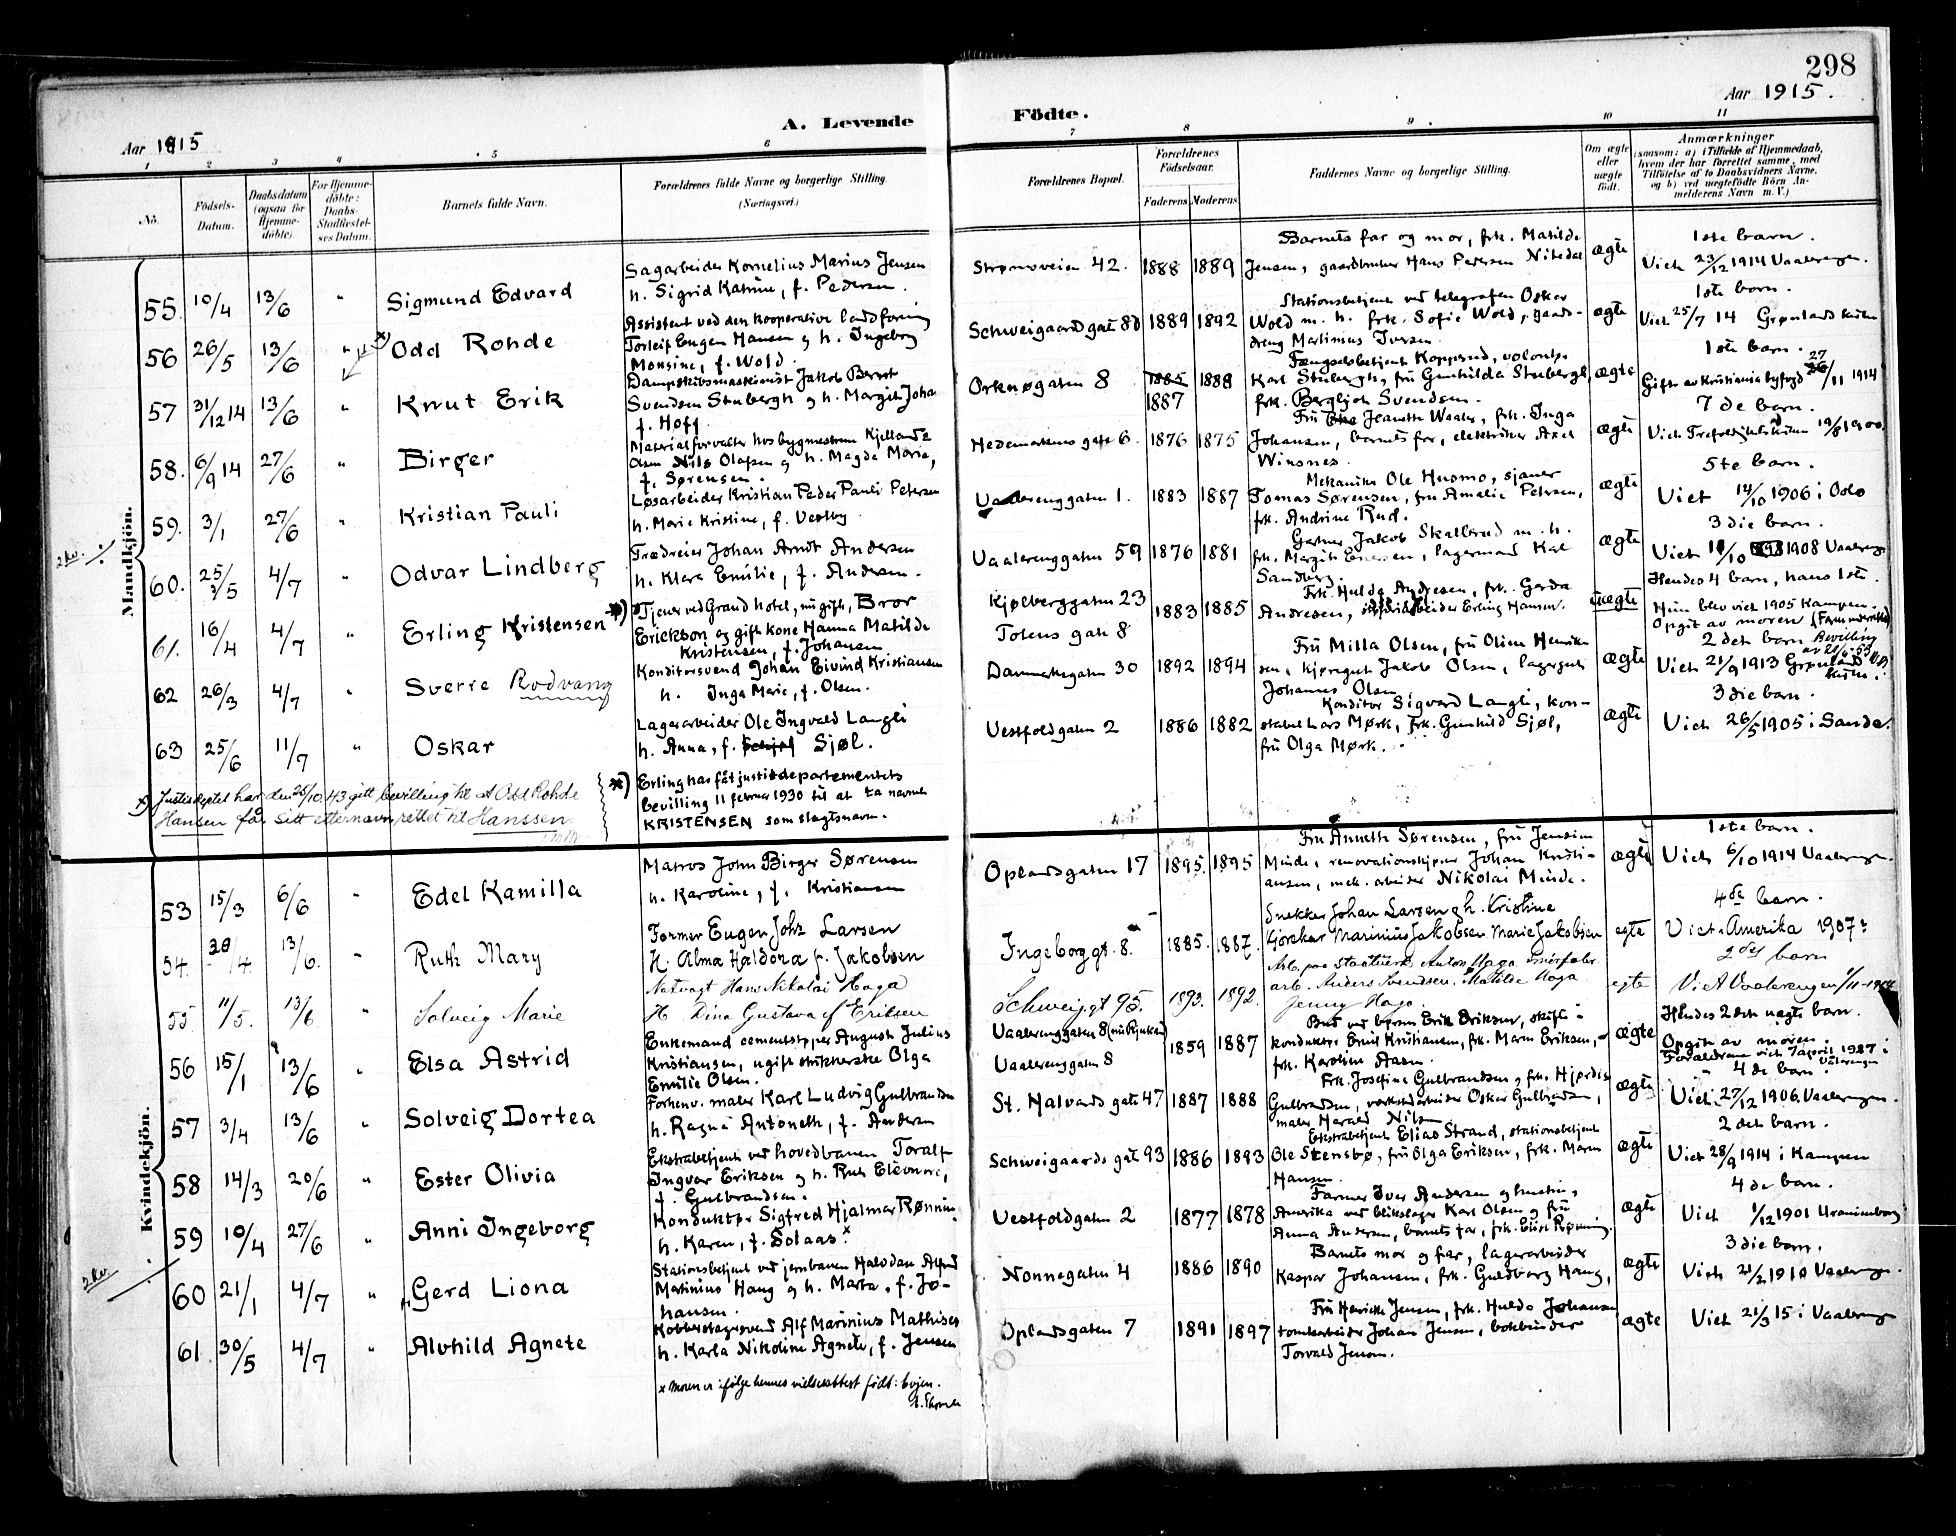 298
Aar 1915
A. Levende
Födte.
Aar 1915.
1 2 3 4 5 6 7 8 9 10 11
No.
Födsels-Datum.
Daabsdatum (ogsaa for Hjemme-döbte).
For Hjemme-döbte: Daabs-Stadfæstel-ses Datum.
Barnets fulde Navn.
Forældrenes fulde Navne og borgerlige Stilling.
(Næringsvei.)
Forældrenes Bopæl.
Forældrenes Födselsaar.
Faderens Moderens
Faddernes Navne og borgerlige Stilling.
Om ægte eller uægte födt.
Anmærkninger
(saasom: a) i Tilfælde af Hjemmedaab,
hvem der har forrettet samme, med
Tilföielse af to Daabsvidners Navne.
og b) ved uægtefödte Börn An-
melderens Navn m. V.)
Mandkjön.
55. 10/4 13/6 " Sigmund Edvard
Sagarbeider Kornelius Marius Jensen
h. Sigrid Katrine, f. Pedersen.
Strømsveien 42. 1888 1889
Barnets far og mor, frk. Matilde
Jensen, gaardbruker Hans Pedersen Nitedal
ægte
1ste barn.
Viet 23/12 1914 Vaalerengen.
56 26/5 13/6 " Odd Rohde
Assistent ved den kooperative landsforening
Torleif Eugen Hansen og h. Ingeborg
Monsine, f. Wold.
Schweigaards gate 8d 1889 1892
Stationsbetjent ved telegrafen Oskar
Wold m. h. frk. Sofie Wold, gaards-
dreng Martinius Iversen
ægte
1ste barn.
Viet 25/7 14 Grønlands kirke
57 31/12 14 13/6 " Knut Erik
Dampskibsmaskinist Jakob Berent
Svendsen Stubergh og h. Margit Joha
f. Hoff
Orknøgaten 8 1885 1887 1888
Fængselsbetjent Kopperud, volontør
Karl Stubergh, fru Gunhilda Stubergh,
frk. Bergljot Svendsen.
ægte
1ste barn.
Gifte av Kristiania byfogd 27/11 1914
58. 6/9 14 27/6 " Birger
Materialforvalter hos bygmesterne Kjelland &
Olsen Nils Olafsen og h. Magda Marie,
f. Sørensen.
Hedemarkens gate 6. 1876 1875
Fru Jeanette Waaler, frk. Inga
Johansen, barnets far, elektriker Axel
Winsnes.
ægte
7de barn.
Viet Trefoldighetskirken 19/8 1900
59. 3/1 27/6 " Kristian Pauli
Løsarbeider Kristian Peder Pauli Petersen
h. Marie Kristine, f. Vestby.
Vaalerenggaten 1. 1883 1887
Mekaniker Ole Husmo, sjauer
Tomas Sørensen, fru Amalie Petersen,
frk. Andrine Rud.
ægte
5te barn.
Viet 14/10 1906 i Oslo
2 kv.
60. 25/5 4/7 " Odvar Lindberg
Trædreier Johan Arndt Andersen
h. Klara Emilie, f. Andersen.
Vaalerenggaten 59 1876 1881
Gartner Jakob Skallerud m. h.
frk. Margit Enersen, lagermand Karl
Sandberg.
ægte
3die barn.
Viet 11/10 1908 Vaalerenge
61. 16/4 4/7 " Erling Kristensen *)
Tjener ved Grand hotel, ugift, Bror
Erickson og gifte kone Hanna Matilde
Kristensen, f. Johansen
Kjølberggaten 23
Totens gate 8
1883 1885
Frk. Hulda Andresen, frk. Gerda
Andresen, Erling Hansen.
uægte
Hendes 4 barn, hans 1ste.
Hun blev viet 1905 Kampen.
Opgit av moren
62 26/3 4/7 " Sverre Rodvang
Konditorsvend Johan Eivind Kristiansen
h. Inga Marie, f. Olsen.
Danmarksgaten 30 1892 1894
Fru Milla Olsen, fru Oline Henrik-
sen, kjøregut Jakob Olsen, lagergut
Johannes Olsen
ægte
2det barn Bevilling
Viet 21/9 1913 Grønland kirke.
63 25/6 11/7 " Oskar
Lagerarbeider Ole Ingvald Langli
h. Anna, f. Sjøl.
Vestfoldgaten 2 1886 1882
Konditor Sigvard Langli, kon-
stabel Lars Mørk, frk. Gunhild Sjøl,
fru Olga Mørk.
ægte
3die barn.
Viet 26/5 1905 i Sande.
x) Justisdeptet har den 25/10 43 gitt bevilling til at Odd Rohde
Hansen får sitt etternavn rettet til Hanssen.
*) Erling har fåt justisdepartementets
bevilling 11 februar 1930 til at ta navnet
KRISTENSEN som slagtsnavn.
Kvindekjön.
53 15/3 6/6 " Edel Kamilla
Matros John Birger Sørensen
h. Karoline, f. Kristiansen
Oplandsgaten 17 1895. 1895
Fru Anneth Sørensen, fru Jensine
Minde, renovationskjører Johan Kristi-
ansen, mek. arbeider Nikolai Minde.
ægte
1ste barn.
Viet 6/10 1914 Vaalerengen.
54. 20/4. 13/6. " Ruth Mary
Former Eugen Johs Larsen
H. Alma Haldora f. Jakobsen
Ingeborg gt. 8. 1885. 1887.
Snekker Johan Larsen g h. Kristine
Kjørekar Marinius Jakobsen Marie Jakobsen
egte
4de barn.
Viet i Amerika 1907
55 11/5. 13/6 " Solveig Marie
Natvagt Hans Nikolai Haga
H. Dina Gustava f Eriksen
Schweig. gt 95. 1893. 1892.
Arb. paa Staalverk Anton Haga
arb. Anders Svendsen. Matilde Haga
Jenny Haga.
egte
2det barn
Viet Vaalerengen 1/11-1914
56 15/1 13/6 " Elsa Astrid
Enkemand cementstøper August Julius
Kristiansen, ugift strikkerske Olga
Emilie Olsen.
Vaalerenggaten 8 (nu Rjukan)
Vaalerenggaten 8
1859 1887
Bud ved børsen Erik Eriksen, skifte-
konduktør Emil Kristiansen, frk. Maren Eriksen,
frk. Karoline Aasen.
ægte
Hendes 2det uægte barn.
Opgit av moren.
Forældrene viet 7 april 1927 i
Vålerengen
57 3/4 13/6 " Solveig Dortea
Forhenv. maler Karl Ludvig Gulbrandsen
h. Ragna Antonette, f. Andersen
St. Halvards gate 47 1887 1888
Frk. Josefine Gulbrandsen, frk. Hjørdis
Gulbrandsen, verkstedarbeider Oskar Gulbrandsen,
maler Harald Nilsen
ægte
4de barn.
Viet 27/12 1906. Vaalerengen.
58 14/3 20/6 " Ester Olivia
Ekstrabetjent ved hovedbanen Toralf
Ingvar Eriksen og h. Rut Eleonore,
f. Gulbrandsen.
Schweigaards gate 93 1886 1893
Ekstrabetjent Elias Strand, stationsbetjent
Ole Stensbø, fru Olga Eriksen, frk. Maren
Hansen.
ægte
2det barn.
Viet 28/9 1914 i Kampen
59 10/4 27/6 " Anni Ingeborg
Konduktør Sigfred Hjalmar Rønning,
h. Karen, f. Solaas x
Vestfoldgaten 2 1877 1878
Farmer Iver Andersen og hustru,
Amerika ved blikslager Karl Olsen og fru
Anna Andersen, barnets far, frk. Elise Rønning.
ægte
4de barn.
Viet 1/12 1901 Uranienborg
2 kv.
60 21/1 4/7 " Gerd Liona
Stationsbetjent ved jernbanen Halvdan Alfred
Matinius Haug og h. Marta, f. Jo-
hansen.
Nonnegaten 4 1886 1890
Barnets mor og far, lagerarbeider
Kaspar Johansen, frk. Guldborg Haug,
ægte
3die barn.
Viet 21/2 1910 Vaalerenge.
61. 30/5 4/7 " Alvhild Agnete
Kobberslagersvend Alf Marinius Mathisen
h. Karla Nikoline Agnete, f. Jensen
Oplandsgaten 7 1891 1897
Fru Henriette Jensen, frk. Hulda Johansen
tomtearbeider Johan Jensen, bokbinder
Torvald Jensen.
ægte
Viet 21/3 15 i Vaalerenge
x Moren er ifølge hennes vielsesattest født: Evjen.